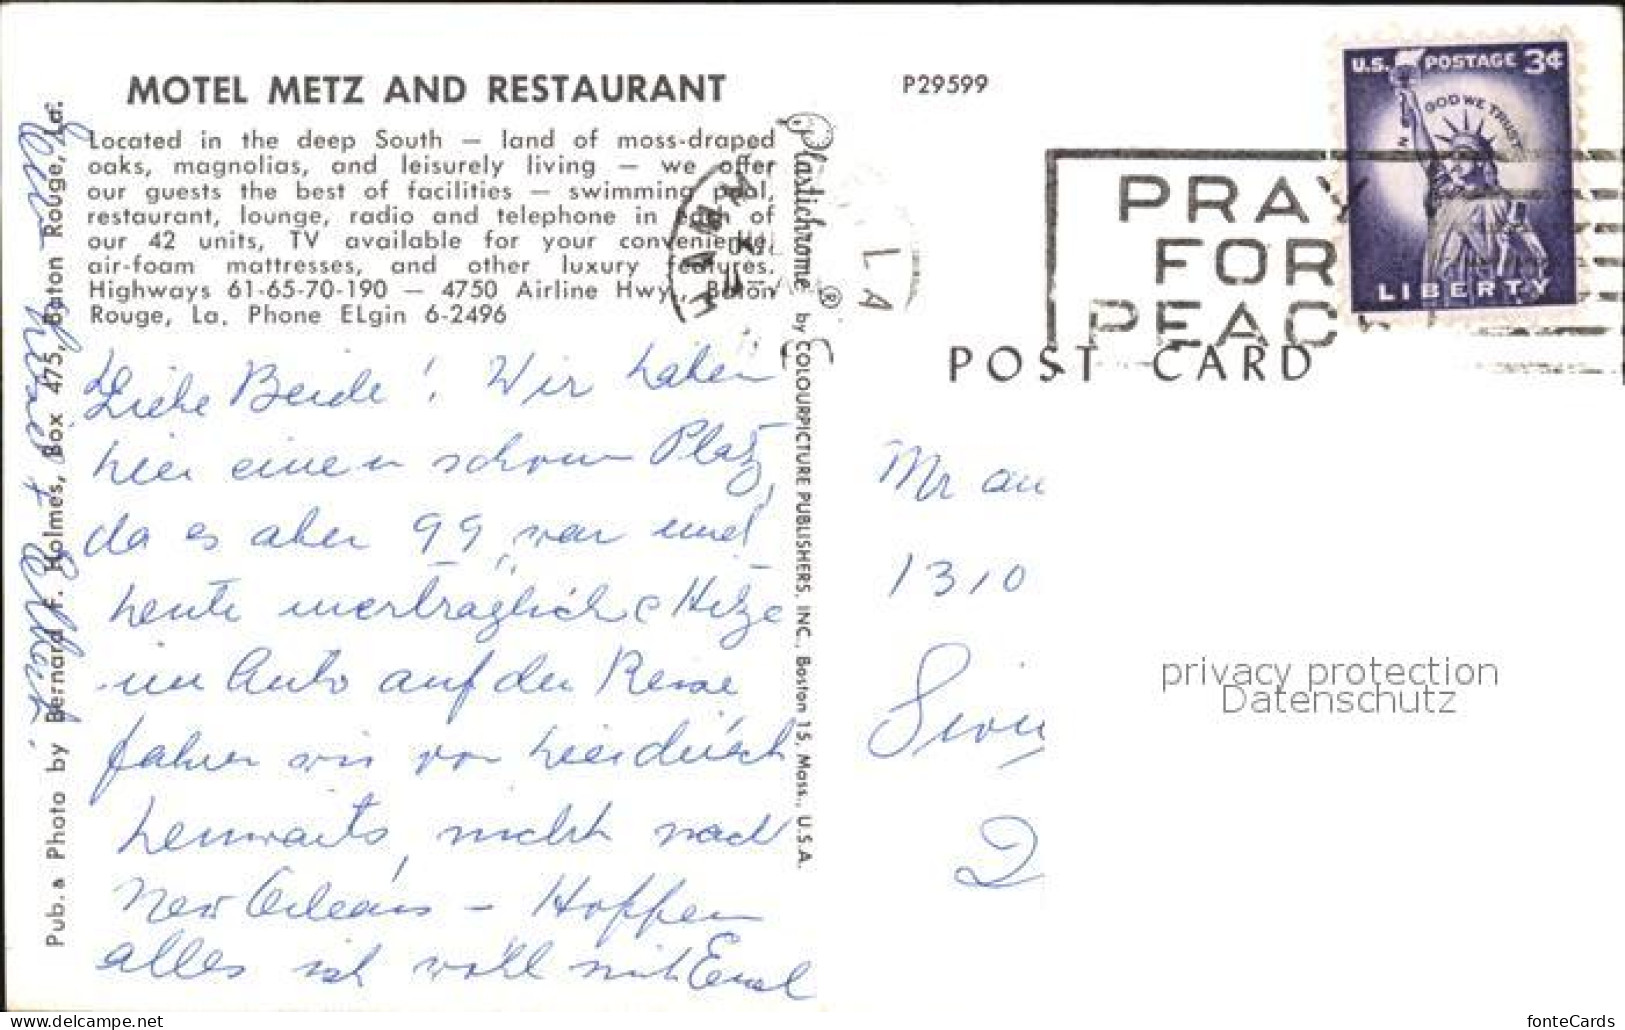 MOTEL METZ AND RESTAURANT
Located in the deep South — land of moss-draped
oaks, magnolias, and leisurely living — we offer
our guests the best of facilities — swimming pool,
restaurant, lounge, radio and telephone in each of
our 42 units, TV available for your convenience,
air-foam mattresses, and other luxury features.
Highways 61-65-70-190 — 4750 Airline Hwy., Baton
Rouge, La. Phone ELgin 6-2496
Liebe Beide! Wir haben
hier einen schonen Platz,
da es aber 99 war und
heute unerträgliche Hitze
im Auto auf der Reise
fahren wir von hier
heimwärts, nicht nach
New Orleans - Hoffen
alles ist wohl mit Euch
Pub. & Photo by Bernard F. Holmes, Box 475, Baton Rouge, La.
Plastichrome ® by COLOURPICTURE PUBLISHERS, INC., Boston 15, Mass., U.S.A.
P29599
LA
PRAY
FOR
PEAC
U.S. POSTAGE 3¢
IN GOD WE TRUST
LIBERTY
POST CARD
Mr an
1310
privacy protection
Datenschutz
www.delcampe.net
fonteCards